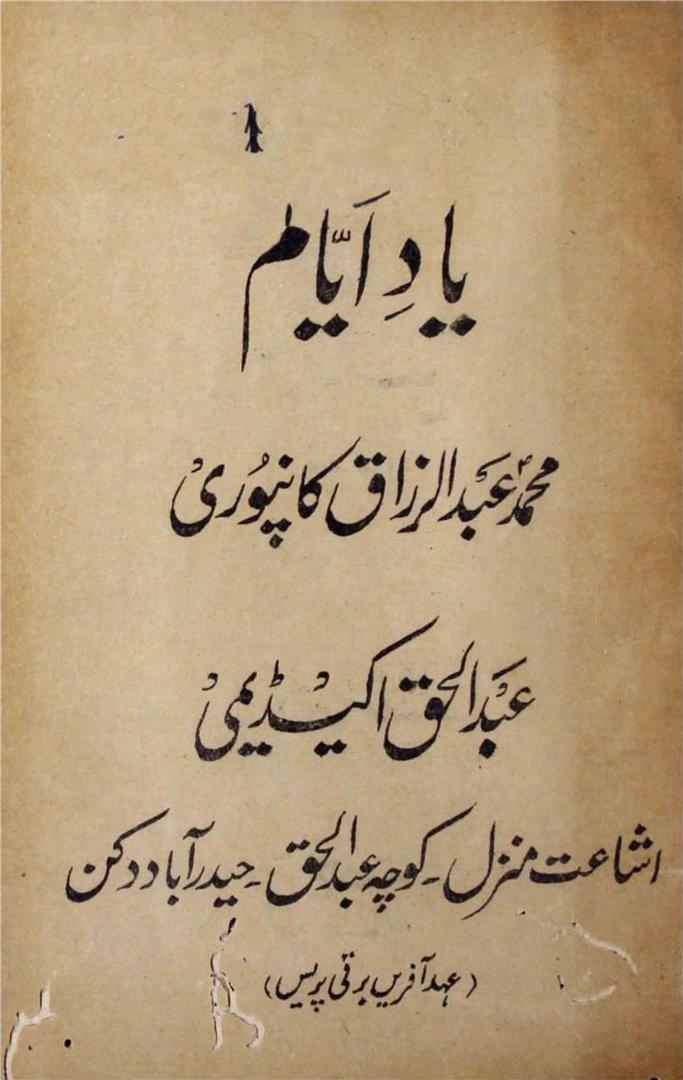 یادِ اَیّام
محمد عبدالرزاق کانپوری
عبدالحق اکیڈیمی
اشاعت منزل۔ کوچہ عبدالحق۔ حیدرآباد دکن
(عہد آفریں برقی پریس)